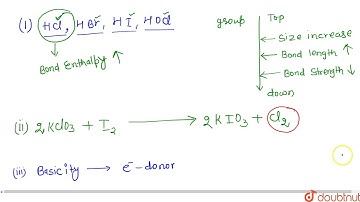 (i) HCl, HBr, HI, HOCl
Bond Enthalpy ↑
group
Top
Size increase
Bond length ↑
Bond Strength ↓
down
(ii) 2KClO3 + I2 ⟶ 2KIO3 + Cl2
(iii) Basicity ⟶ e⁻-donor
doubtnut